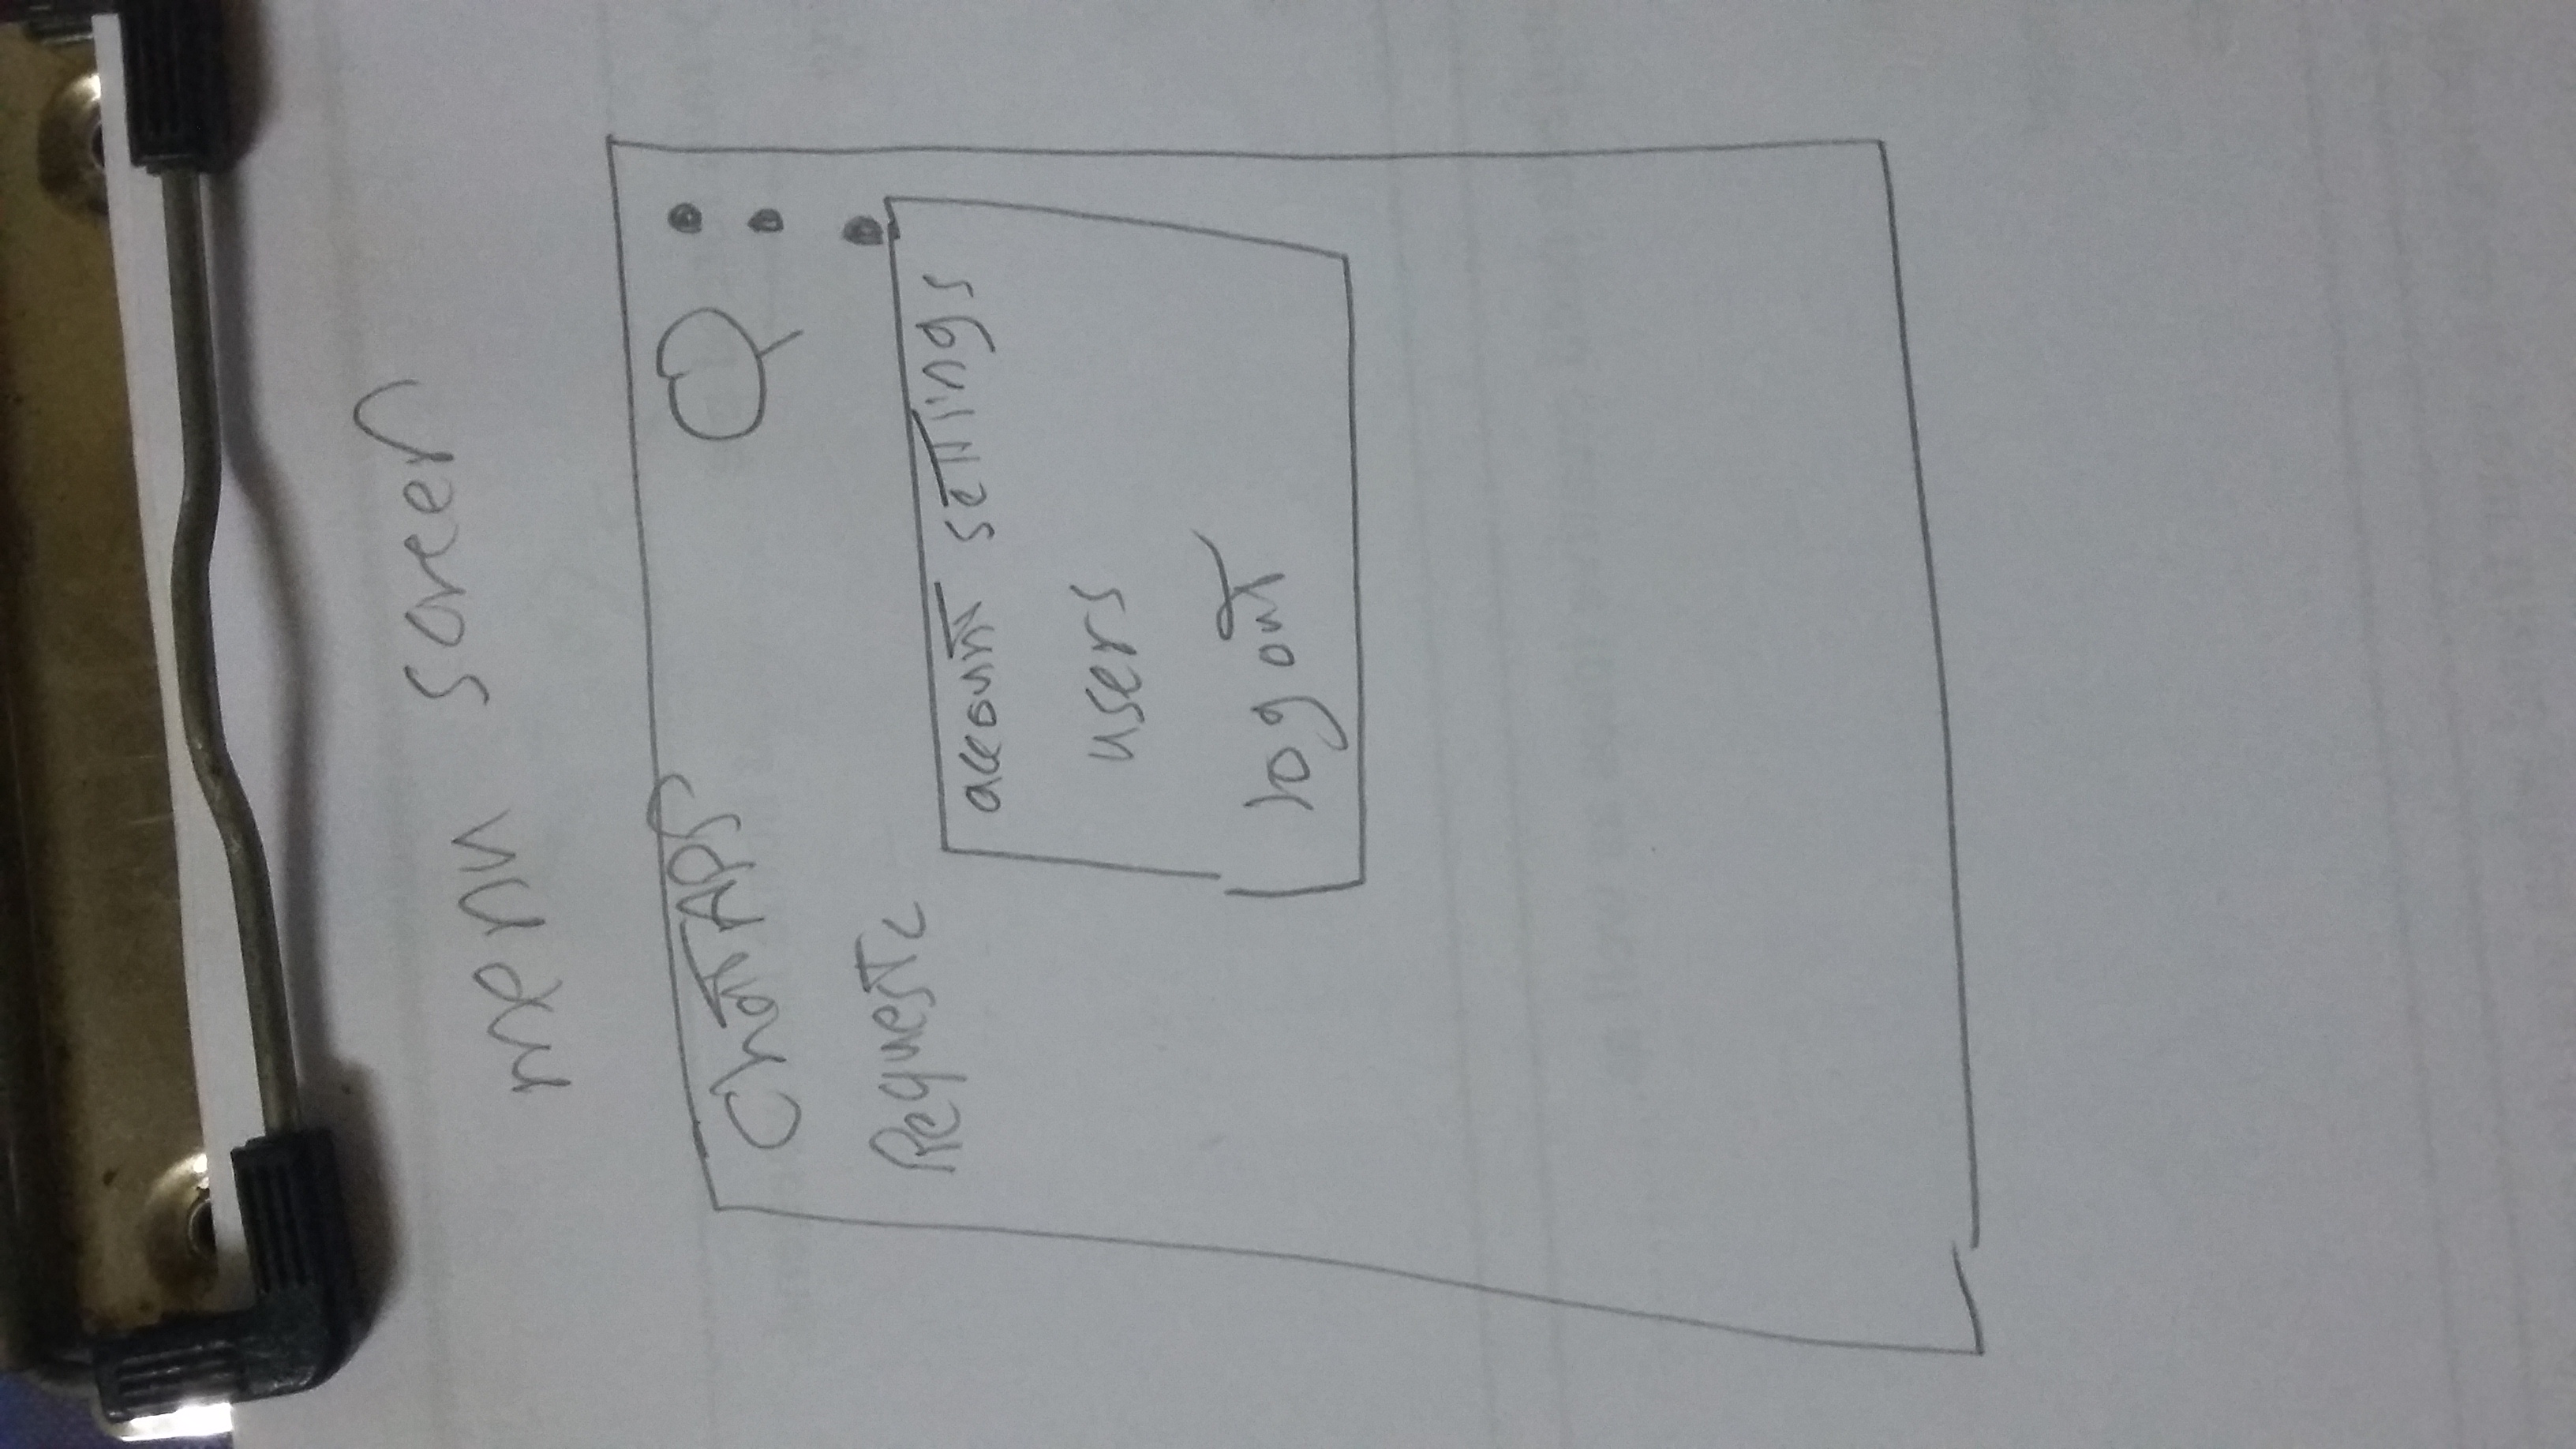 menu screen
Chat App
Requests
account settings
users
log out